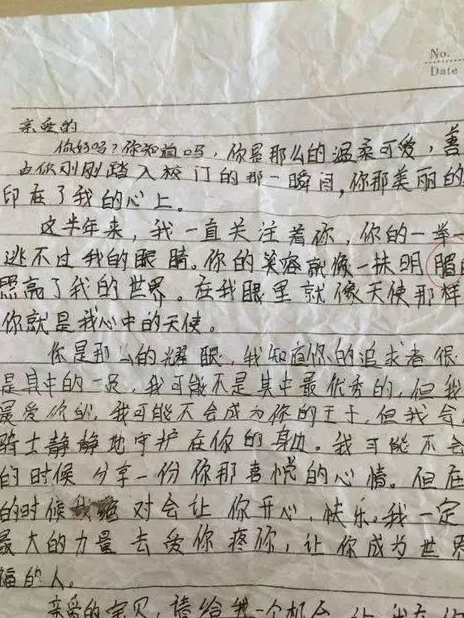 No.
Date
亲爱的
你好吗?你知道吗,你是那么的温柔可爱,善
由你刚刚踏入校门的那一瞬间,你那美丽的
印在了我的心上。
这半年来,我一直关注着你,你的一举一
逃不过我的眼睛。你的笑容就像一扶明眉
照亮了我的世界。在我眼里就像天使那样
你就是我心中的天使。
你是那么的耀眼,我知道你的追求者很
是其中的一员,我可能不是其中最优秀的,但我
最爱你的,我可能不会成为你的王子,但我会
骑士静静地守护在你的身边。我可能不会
的时候分享一份你那喜悦的心情。但在
的时候我绝对会让你开心、快乐。我一定
最大的力量去爱你疼你,让你成为世界
福的人。
亲爱的宝贝,请给我一个机会,让我在你